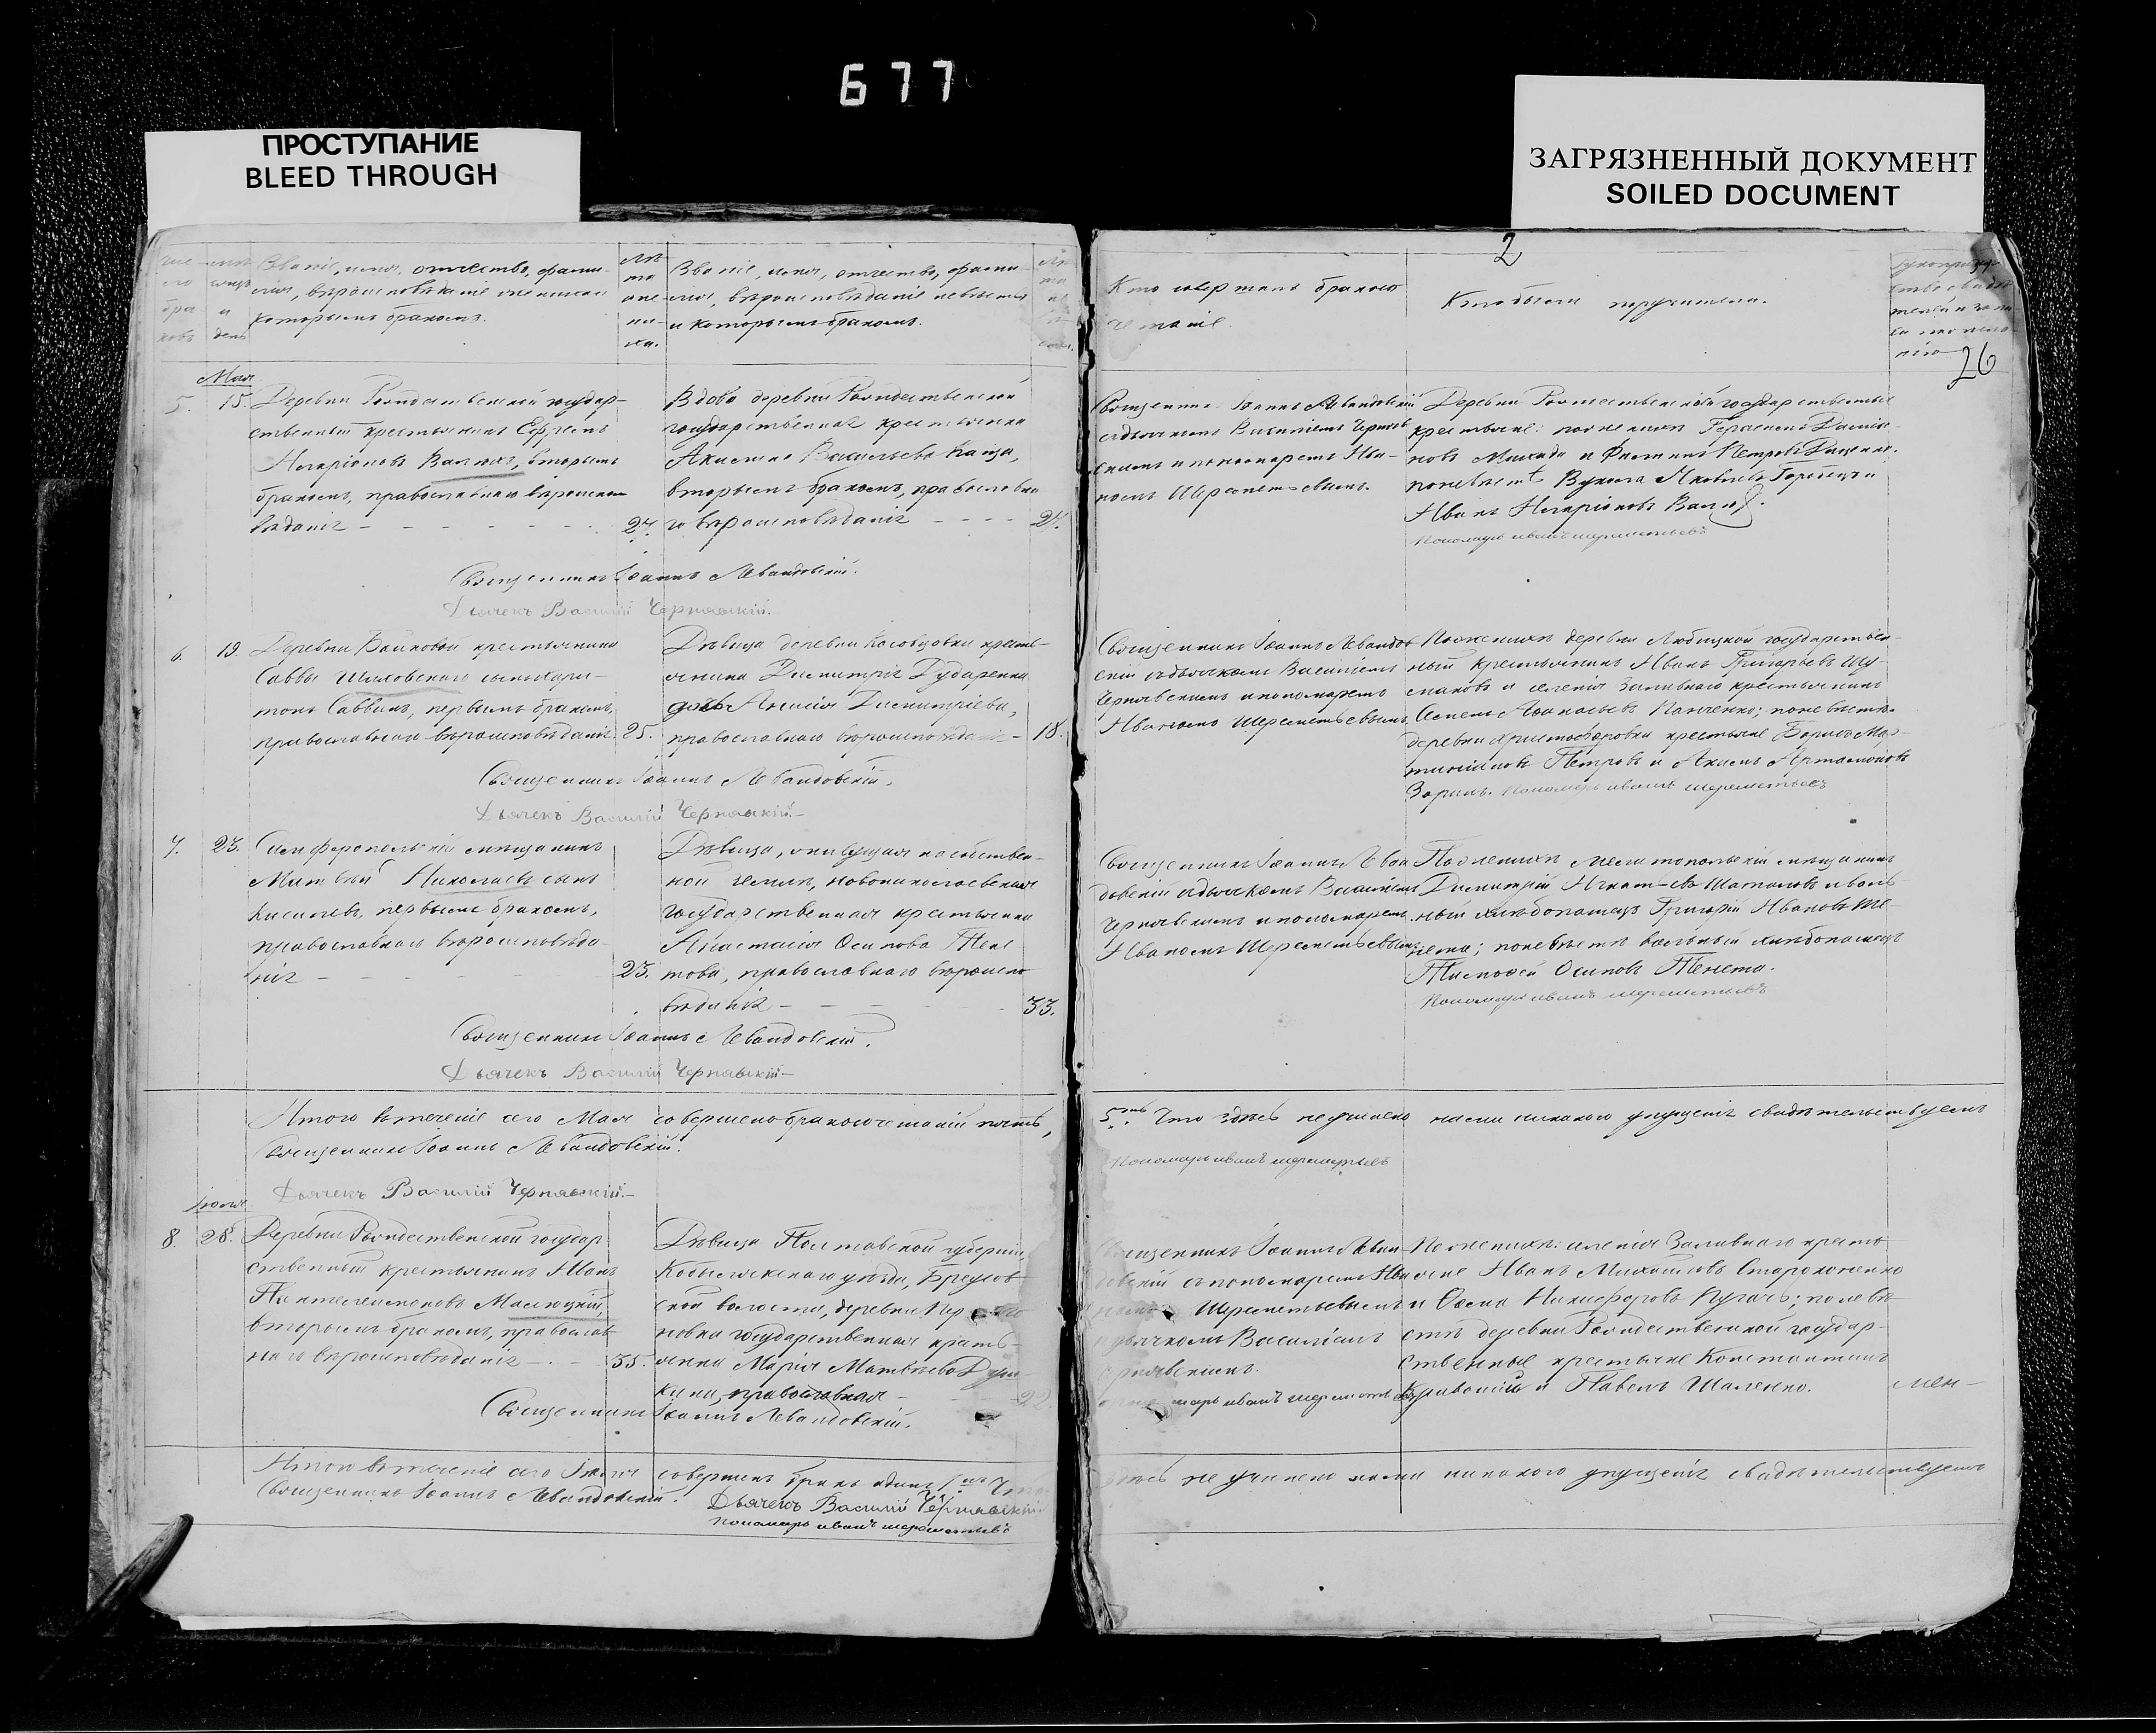 677
ПРОСТУПАНИЕ
BLEED THROUGH
ЗАГРЯЗНЕННЫЙ ДОКУМЕНТ
SOILED DOCUMENT
2
26
Званіе, имя, отчество, фами-
лія, вѣроисповѣданіе жениха и
которымъ бракомъ.
Лѣ
та
же
ни-
ха.
Званіе, имя, отчество, фами-
лія, вѣроисповѣданіе невѣсты
и которымъ бракомъ.
Кто совершалъ бракосо
четаніе.
Кто были поручители.
Мая
5. 15. Деревни Рождественской государ-
ственный крестьянинъ Ефремъ
Иларіоновъ вторымъ
бракомъ, православнаго вѣроиспо
вѣданія 27.
Вдова деревни Рождественской
государственная крестьянка
Васильева
вторымъ бракомъ, православна
го вѣроисповѣданія 27.
Священникъ Іоаннъ Левандовскій
съ дьячкомъ Василіемъ Черняв
скимъ и пономаремъ Ива-
номъ Шереметьевымъ.
Деревни Рождественской государственные
крестьяне: по женихѣ Герасимъ
и Петровъ
по невѣстѣ Яковлевъ и
Иванъ Иларіоновъ
Пономарь иванъ шереметьевъ
Священникъ Іоаннъ Левандовскій.
Дьячекъ Василій Чернявскій.
6. 19. Деревни крестьянина
Саввы Шиховскаго сынъ Хари-
тонъ Саввинъ, первымъ бракомъ,
православнаго вѣроисповѣданія 25.
Дѣвица деревни кресть-
янина Димитрія Дударенка
дочь Димитріева,
православнаго вѣроисповѣданія 18.
Священникъ Іоаннъ Левандов
скій съ дьячкомъ Василіемъ
Чернявскимъ и пономаремъ
Иваномъ Шереметьевымъ
По женихѣ деревни Любицкой государствен-
ный крестьянинъ Иванъ Григорьевъ Шу-
маковъ и селенія Заливнаго крестьянинъ
Панченко; по невѣстѣ
деревни Христофоровки крестьяне Борисъ Мар-
тиніановъ Петровъ и Акимъ Артамоновъ
Зоринъ. Пономарь иванъ шереметьевъ
Священникъ Іоаннъ Левандовскій.
Дьячекъ Василій Чернявскій
7. 23. Симферопольскій мѣщанинъ
Матвѣй Николаевъ сынъ
Киселевъ, первымъ бракомъ,
православнаго вѣроисповѣда-
нія 23.
Дѣвица, живущая на собствен-
ной землѣ, новониколаевская
государственная крестьянка
Анастасія Осипова Тене-
това, православнаго вѣроиспо
вѣданія 33.
Священникъ Іоаннъ Леван
довскій съ дьячкомъ Василіемъ
Чернявскимъ и пономаремъ
Иваномъ Шереметьевымъ
По женихѣ мелитопольскій мѣщанинъ
Димитрій Игнатьевъ Шаталовъ и воль
ный хлѣбопашецъ Григорій Ивановъ Те-
нета; по невѣстѣ вольный хлѣбопашецъ
Тимофей Осиповъ Тенета.
Пономарь иванъ шереметьевъ
Священникъ Іоаннъ Левандовскій.
Дьячекъ Василій Чернявскій
Итого въ теченіе сего Мая совершено бракосочетаній пять, 5ть. Что здѣсь не учинено нами никакого упущенія свидѣтельствуемъ
Священникъ Іоаннъ Левандовскій.
Пономарь иванъ шереметьевъ
Дьячекъ Василій Чернявскій
8. 28. Деревни Рождественской государ
ственный крестьянинъ Иванъ
Пантелеимоновъ
вторымъ бракомъ, православ
наго вѣроисповѣданія 35.
Дѣвица Полтавской губерніи
Кобелякскаго уѣзда,
ской волости, деревни
новки государственная кресть-
янка Марія Матвѣева
кина, православная
Священникъ Іоаннъ Леван
довскій съ пономаремъ Ива
номъ Шереметьевымъ
и дьячкомъ Василіемъ
Чернявскимъ.
пономарь иванъ шереметьевъ
По женихѣ: селенія Заливнаго кресть
яне Иванъ Михайловъ Староконенко
и Никифоровъ Пугачъ; по невѣ
стѣ деревни Рождественской государ-
ственные крестьяне Константинъ
и Павелъ Шаленко.
Священникъ Іоаннъ Левандовскій.
Итого въ теченіе сего Іюля совершенъ бракъ одинъ Что здѣсь не учинено нами никакого упущенія свидѣтельствуемъ
Священникъ Іоаннъ Левандовскій. Дьячекъ Василій Чернявскій
Пономарь иванъ шереметьевъ